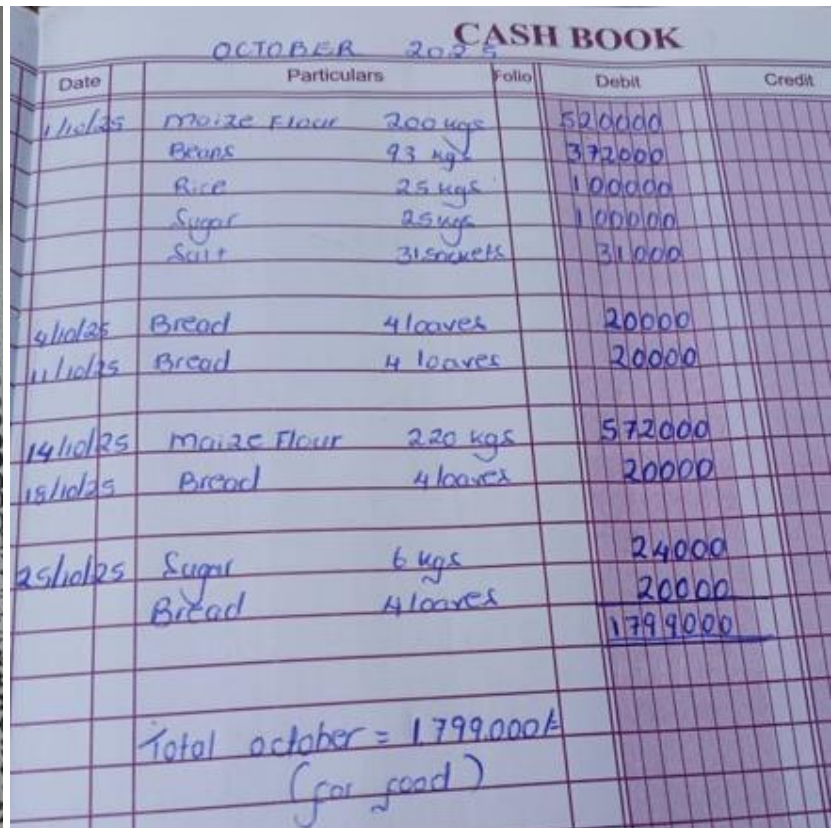 CASH BOOK
OCTOBER 2025
Date Particulars Folio Debit Credit
1/10/25 Maize Flour 200 kgs 520000
Beans 93 kgs 372000
Rice 25 kgs 100000
Sugar 25 kgs 100000
Salt 31 sackets 31000
4/10/25 Bread 4 loaves 20000
11/10/25 Bread 4 loaves 20000
14/10/25 Maize Flour 220 kgs 572000
18/10/25 Bread 4 loaves 20000
25/10/25 Sugar 6 kgs 24000
Bread 4 loaves 20000
1799000
Total october = 1.799.000/=
(for food)